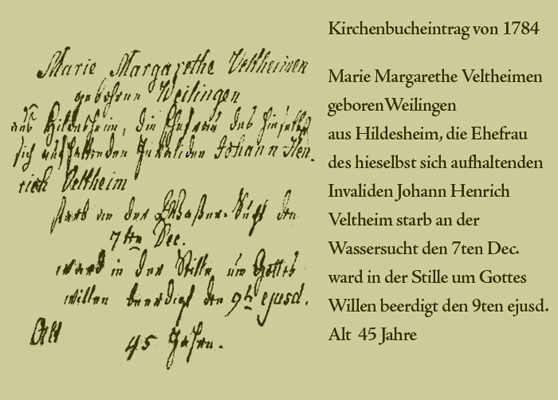 Marie Margarethe Veltheimen
gebohrne Weilingen
aus Hildesheim, die Ehefrau des hieselbst
sich aufhaltenden Invaliden Johann Hen-
rich Veltheim
starb an der Waßer-Sucht den
7ten Dec.
ward in der Stille um Gottes
willen beerdigt den 9ten ejusd.
Alt 45 Jahre.
Kirchenbucheintrag von 1784
Marie Margarethe Veltheimen
geboren Weilingen
aus Hildesheim, die Ehefrau
des hieselbst sich aufhaltenden
Invaliden Johann Henrich
Veltheim starb an der
Wassersucht den 7ten Dec.
ward in der Stille um Gottes
Willen beerdigt den 9ten ejusd.
Alt 45 Jahre